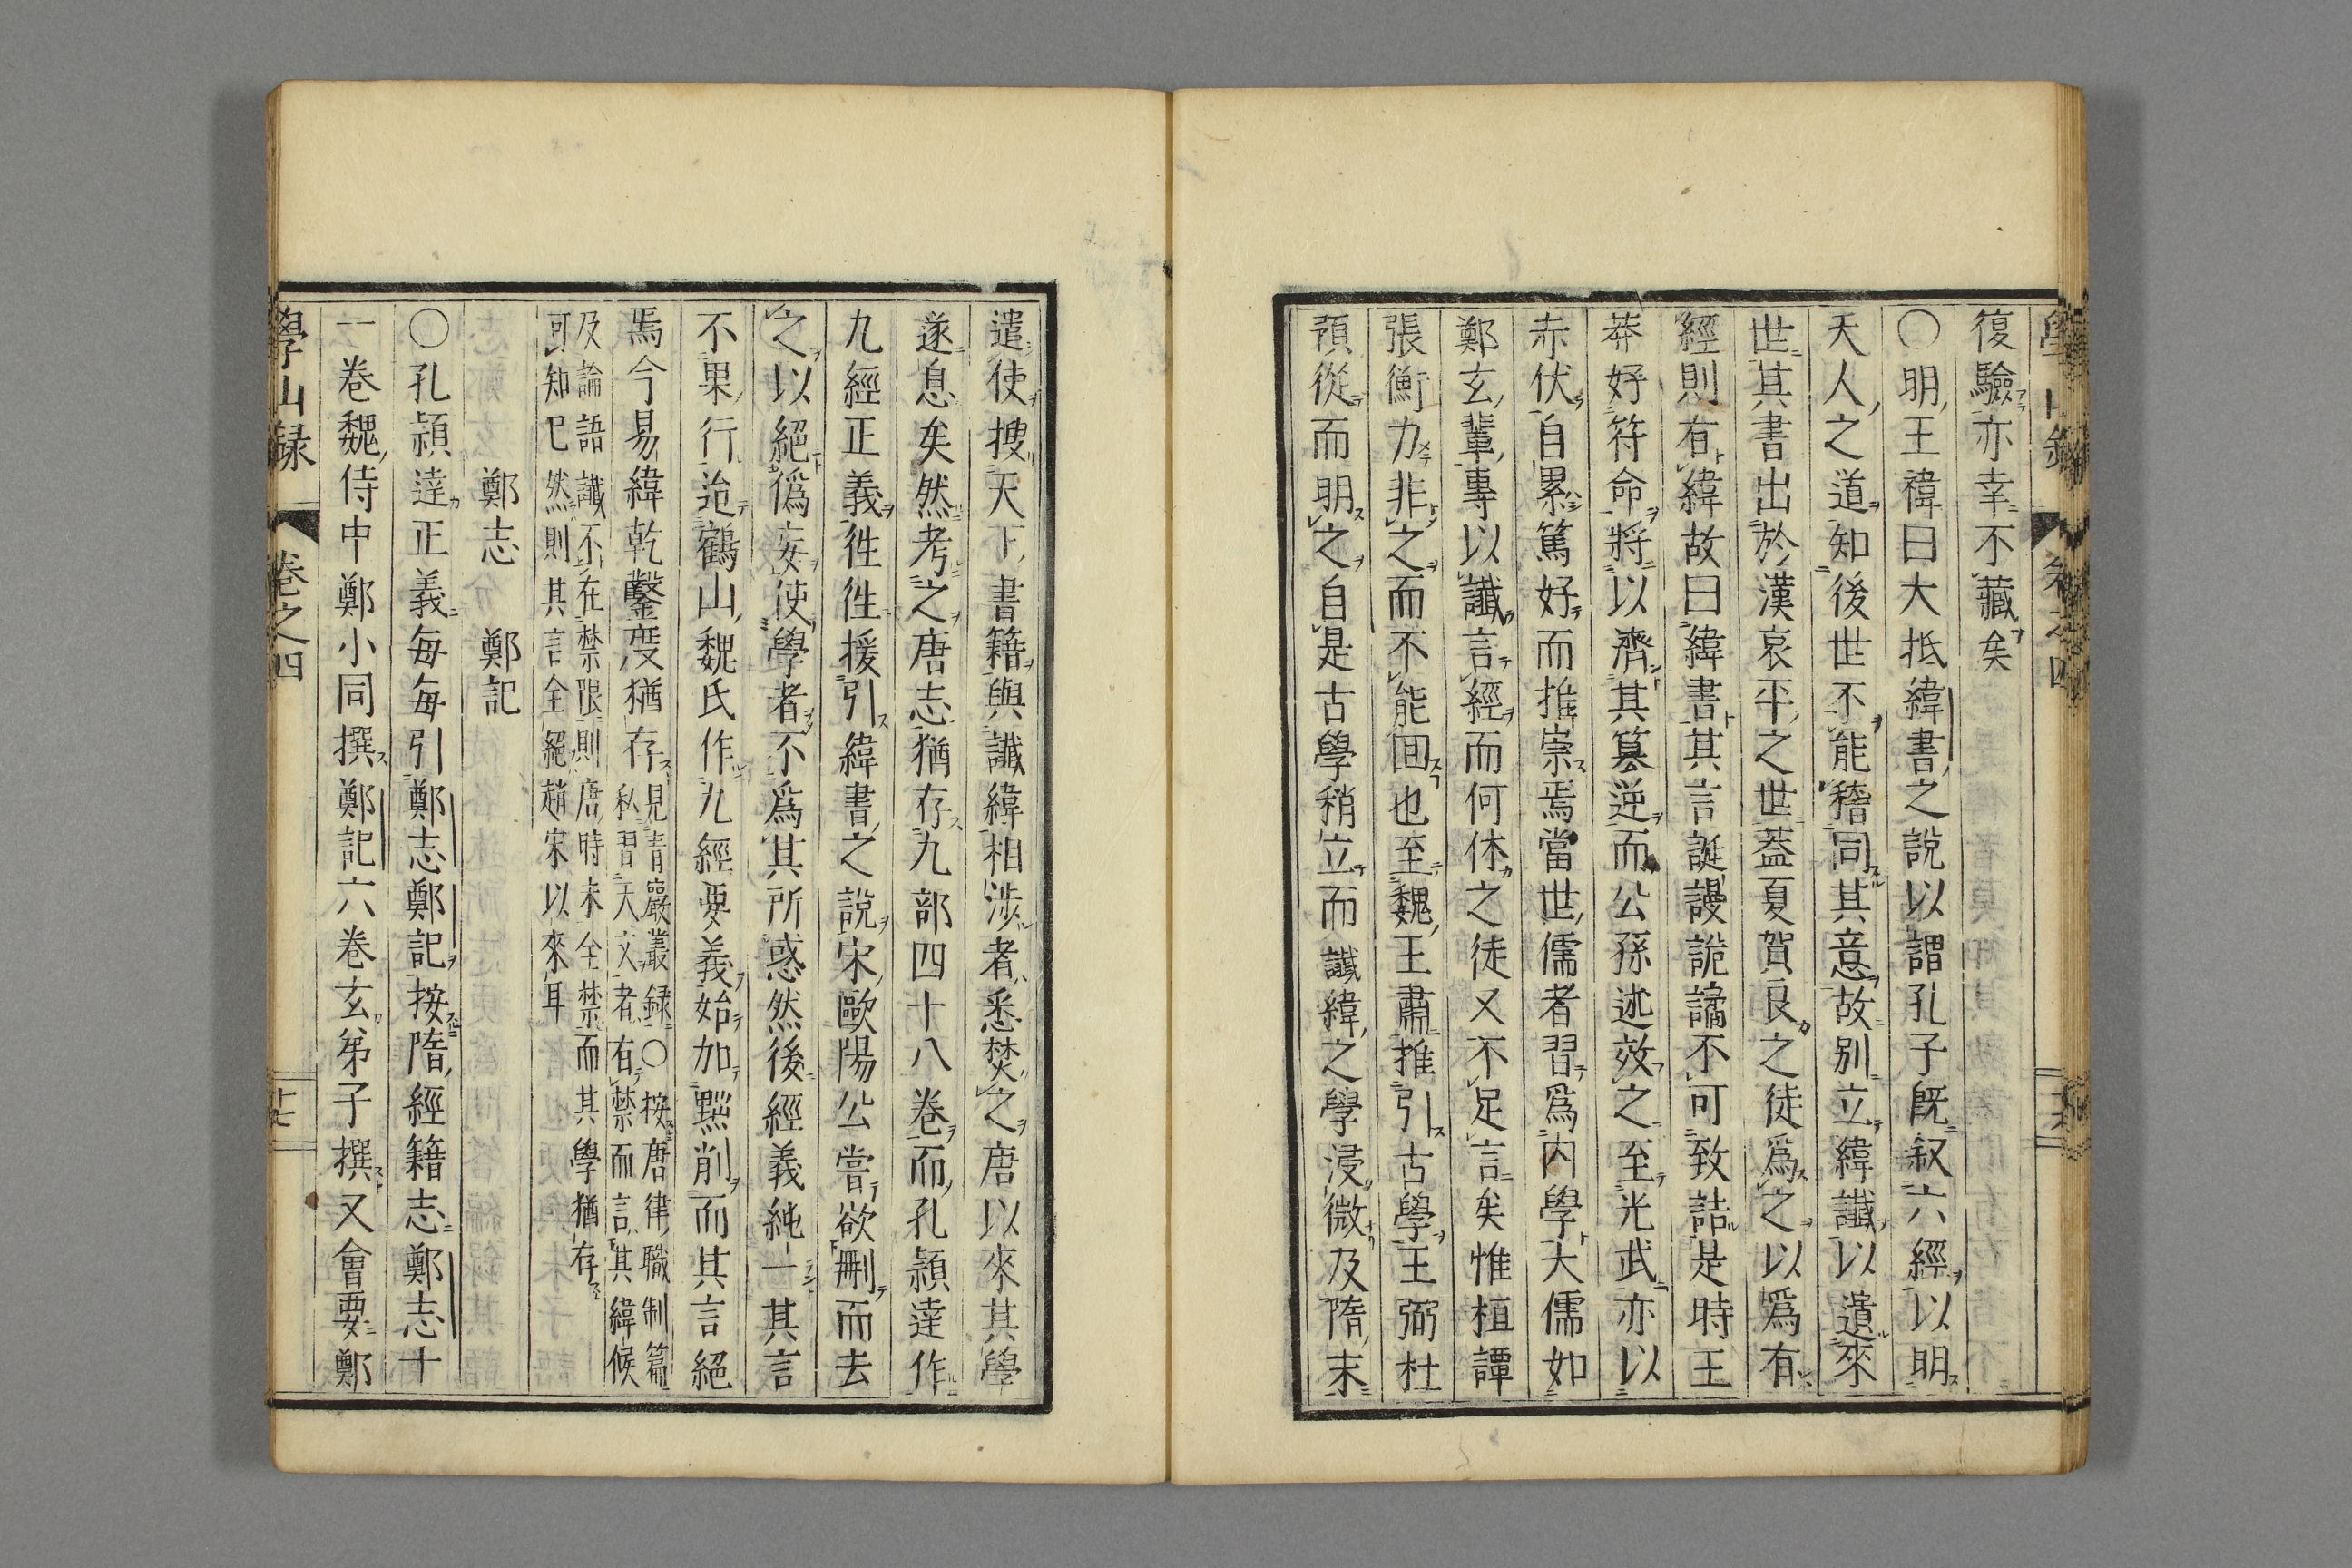 復驗亦幸不藏矣
〇明王禕曰大抵緯書之說以謂孔子旣叙六經以明
天人之道知後世不能稽同其意故別立緯讖以遺來
世其書出於漢哀平之世蓋夏賀良之徒爲之以爲有
經則有緯故曰緯書其言誕謾詭譎不可致詰是時王
莽好符命將以濟其篡逆而公孫述效之至光武亦以
赤伏自累篤好而推崇焉當世儒者習爲內學大儒如
鄭玄輩專以讖言經而何休之徒又不足言矣惟桓譚
張衡力非之而不能回也至魏王肅推引古學王弼杜
預從而明之自是古學稍立而讖緯之學浸微及隋末
遣使搜天下書籍與讖緯相涉者悉焚之唐以來其學
遂息矣然考之唐志猶存九部四十八卷而孔頴達作
九經正義徃徃援引緯書之說宋歐陽公嘗欲刪而去
之以絕僞妄使學者不爲其所惑然後經義純一其言
不果行迨鶴山魏氏作九經要義始加黜削而其言絕
焉今易緯乾鑿度猶存見靑巖叢録〇按唐律職制篇
私習天文者有禁而言其緯候
及論語讖不在禁限則唐時未全禁而其學猶存
可知已然則其言全絕趙宋以來耳
鄭志 鄭記
〇孔頴達正義每每引鄭志鄭記按隋經籍志鄭志十
一卷魏侍中鄭小同撰鄭記六卷玄弟子撰又會要鄭
學山録 卷之四 十七